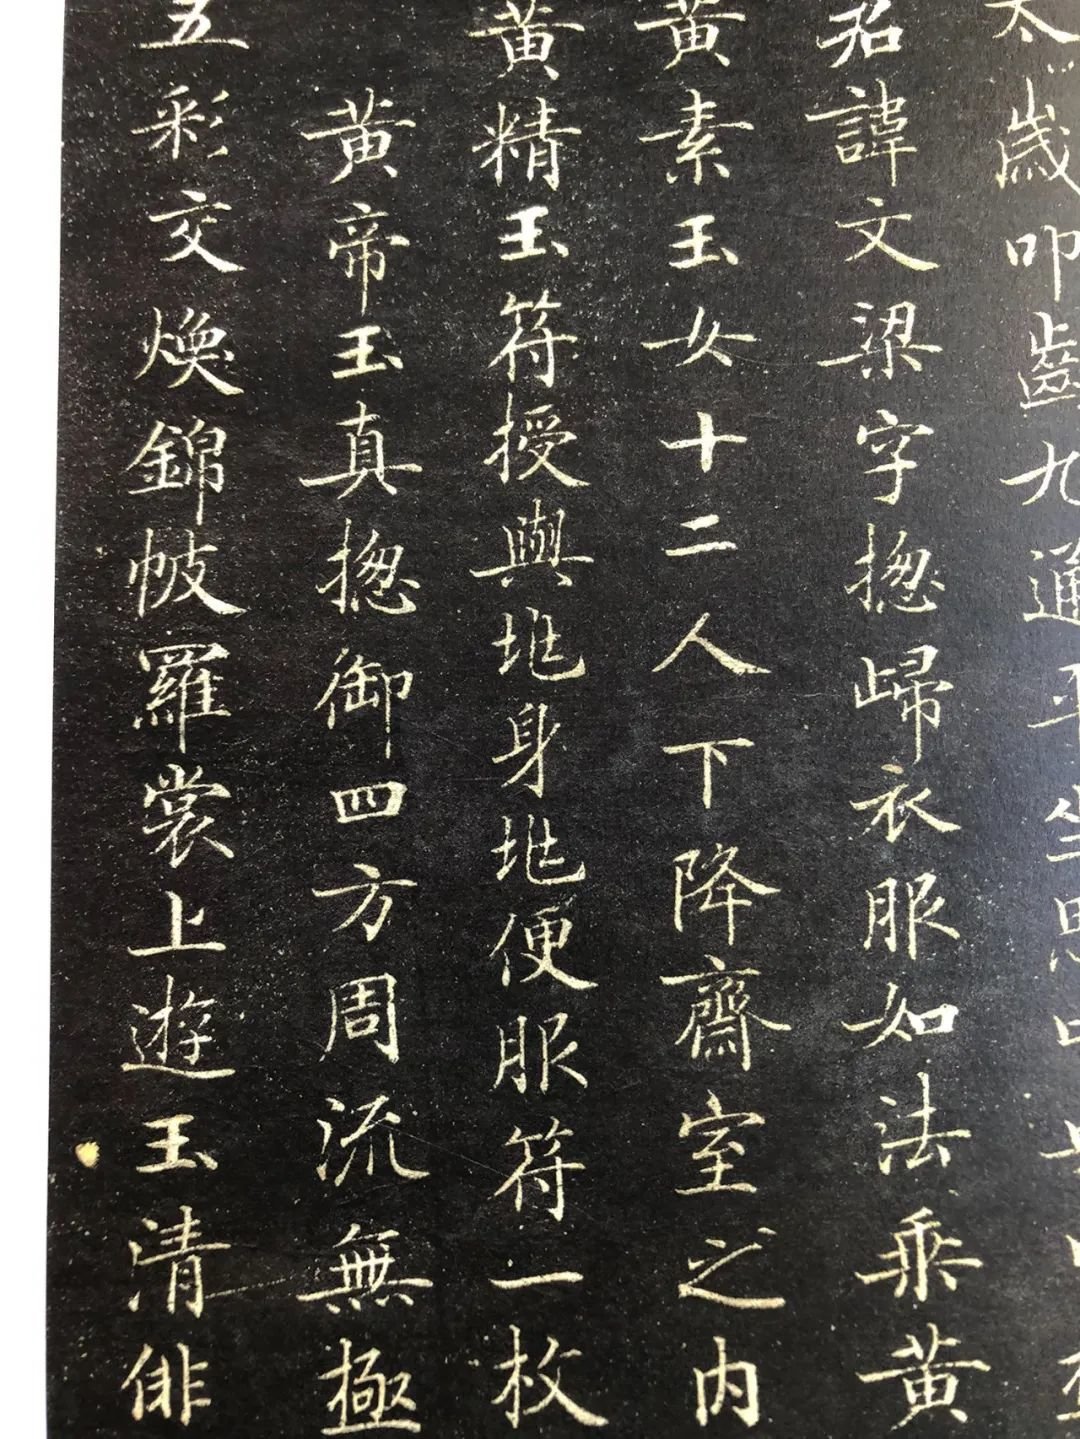 太歲叩齒九通平坐思
名諱文梁字揔歸衣服如法乘黃
黃素玉女十二人下降齋室之内
黃精玉符授與兆身兆便服符一枚
黃帝玉真揔御四方周流無極
五彩交煥錦帔羅裳上遊玉清俳